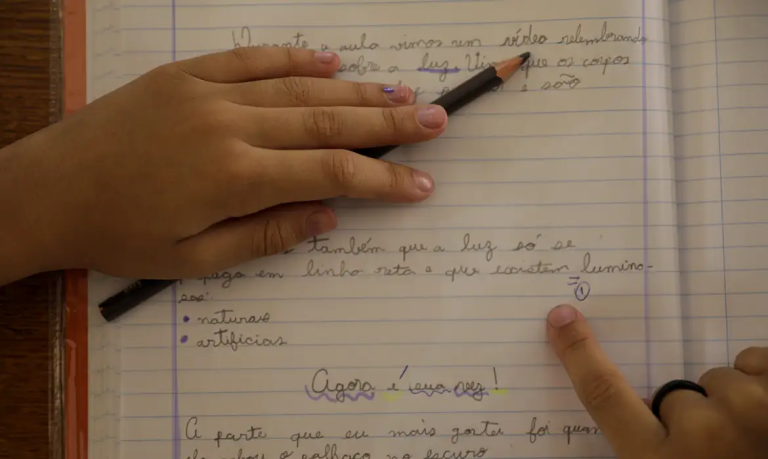 Durante a aula vimos um vídeo relembrando
sobre a luz. que os corpos
e são
também que a luz só se
em linha reta e que existem lumino-
sos:
① 
• naturais
• artificiais
Agora é sua vez!
A parte que eu mais gostei foi quan
o palhaço no escuro